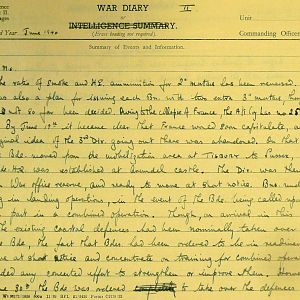 WAR DIARY
II
or
INTELLIGENCE SUMMARY.
(Erase heading not required).
Unit
Commanding Officer
Year June 1940
Summary of Events and Information.
rates of smoke and H.E. ammunition for 2" mortar has been reversed.
was also a plan for issuing each Bn. with two extra 3" mortars
not so far been decided. Owing to the collapse of France, the
By June 17th it became clear that France would soon capitulate,
original idea of the 3rd Div. going out there was abandoned. In that
Bde. moved from the mobilization area at to Sussex,
was established at Arundel Castle. The Div. was then
War Office reserve, and ready to move at short notice. Bns.
in landing operations, in the event of the Bde. being called upon
part in a combined operation. Though, on arrival in this
existing coastal defences had been nominally taken over
Bde, the fact that Bdes. had been ordered to be in readiness
at short notice and concentrate on training for combined
any concerted effort to strengthen or improve them.
30th the Bde was ordered to take over the defences